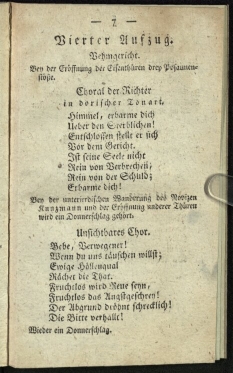 — 7 —
Vierter Aufzug.
Vehmgericht.
Bey der Eröffnung der Eisenthüren drey Posaunen-
stöße.
Choral der Richter
in dorischer Tonart.
Himmel, erbarme dich
Ueber den Sterblichen!
Entschlossen stelle er sich
Vor dem Gericht.
Ist seine Seele nicht
Rein von Verbrechen,
Rein von der Schuld;
Erbarme dich!
Bey der unterirdischen Wanderung des Novizen
Kunzmann und der Eröffnung anderer Thüren
wird ein Donnerschlag gehört.
Unsichtbares Chor.
Bebe, Verwegener!
Wenn du uns täuschen willst;
Ewige Höllenqual
Rächet die That.
Fruchtlos wird Reue seyn,
Fruchtlos das Angstgeschrey!
Der Abgrund dröhnt schrecklich!
Die Bitte verhallt!
Wieder ein Donnerschlag.